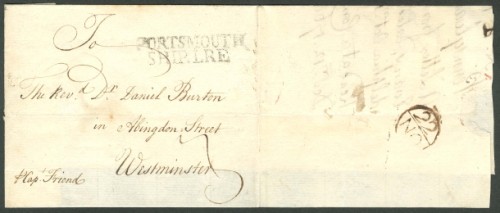 To
PORTSMOUTH
SHIP LRE
The Revd. Dr. Daniel Burton
in Abingdon Street
Westminster
Capt. Friend
22
NO